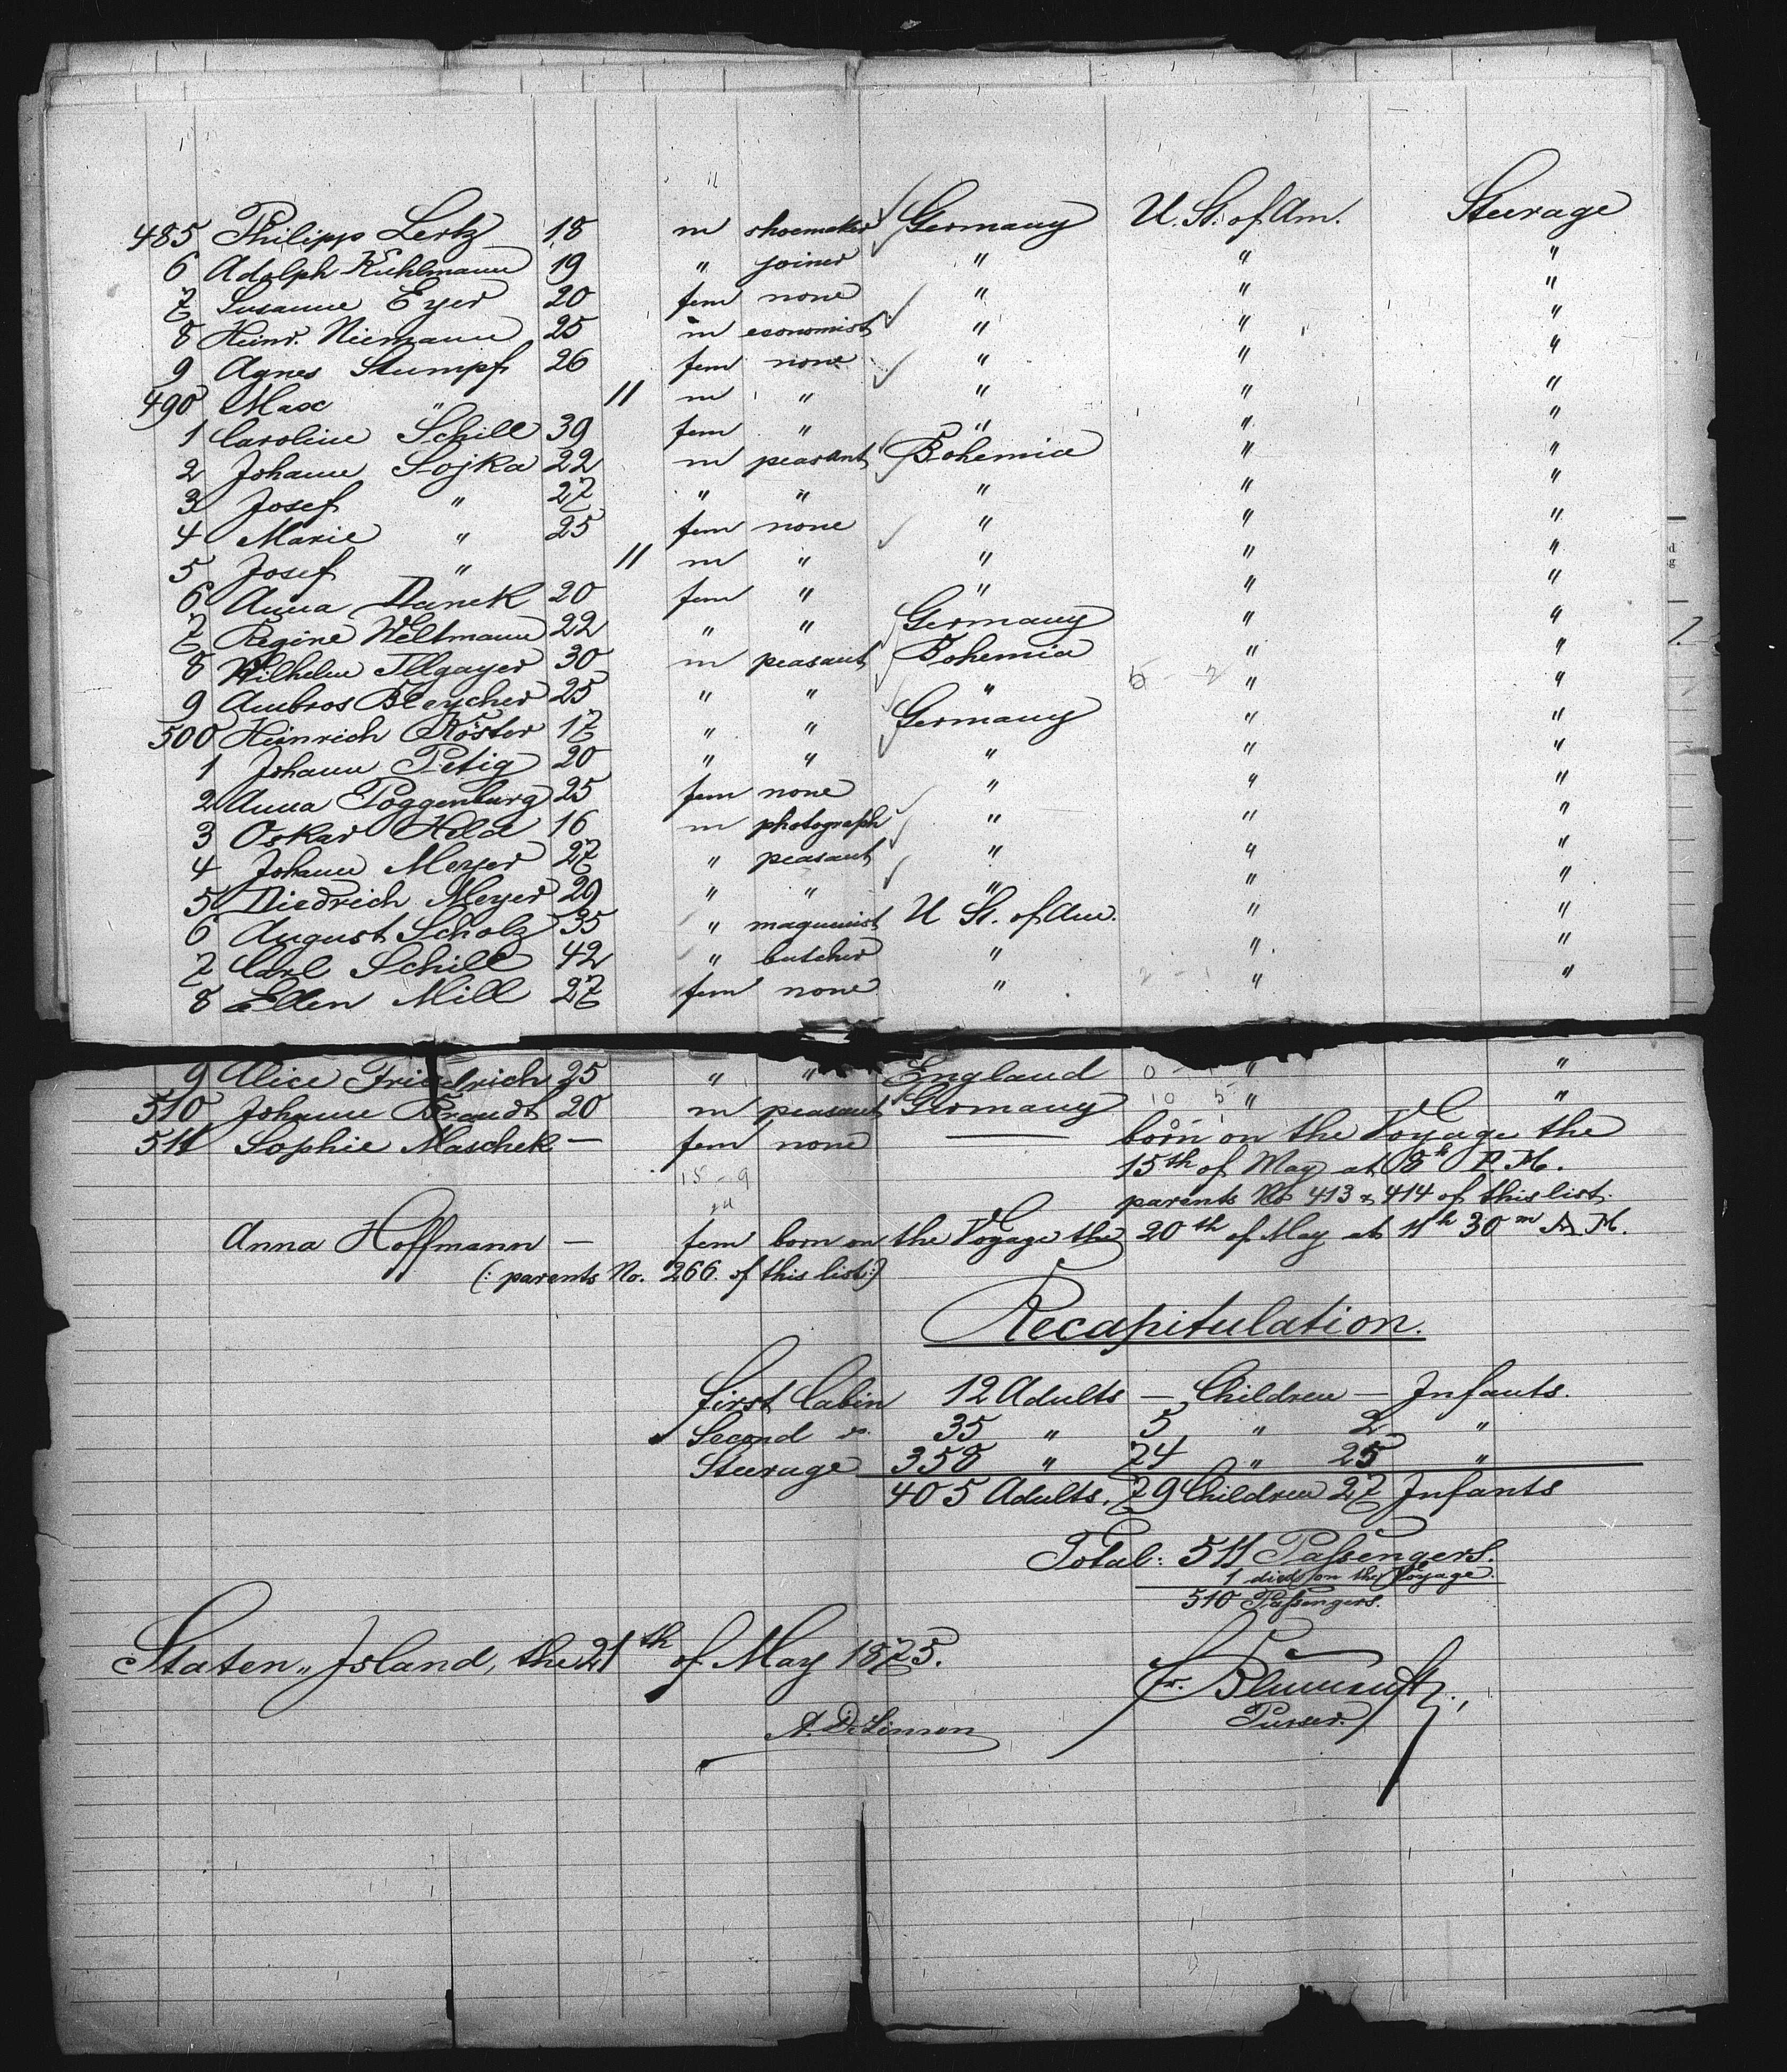 485 Philipp Lertz 18 m shoemaker Germany U. St. of Am. Steerage
6 Adolph Kuhlmann 19 " joiner " " "
7 Susanne Eyer 20 fem none " " "
8 Heinr. Niemann 25 m economist " " "
9 Agnes Stumpf 26 fem none " " "
490 Max " 11 m " " " "
1 Caroline Schill 39 fem " " " "
2 Johann Sojka 22 m peasant Bohemia " "
3 Josef " 27 " " " " "
4 Marie " 25 fem none " " "
5 Josef " 11 m " " " "
6 Anna Danek 20 fem " " " "
7 Regine Weltmann 22 " " Germany " "
8 Wilhelm Illgayer 30 m peasant Bohemia " "
9 Ambros Bleycher 25 " " " " "
500 Heinrich Köster 17 " " Germany " "
1 Johann Petig 20 " " " " "
2 Anna Poggenburg 25 fem none " " "
3 Oskar Held 16 m photograph " " "
4 Johann Meyer 27 " peasant " " "
5 Diedrich Meyer 29 " " " " "
6 August Scholz 35 " maquinist U St. of Am. " "
7 Carl Schill 42 " butcher " " "
8 Ellen Mill 27 fem none " " "
9 Alice Friedrich 25 " " England " "
510 Johann Brandt 20 m peasant Germany " "
511 Sophie Maschek — fem none — born on the Voyage the
15th of May at 8h P. M.
parents No 413 & 414 of this list.
Anna Hoffmann — fem born on the Voyage the 20th of May at 11h 30m A. M.
(: parents No. 266. of this list :)
Recapitulation.
First Cabin 12 Adults — Children — Infants.
Second do. 35 " 5 " 2 "
Steerage 358 " 74 " 25 "
405 Adults, 79 Children 27 Infants
Total: 511 Passengers.
1 died on the Voyage.
510 Passengers.
Staten Island, the 21th of May 1875.
Purser.